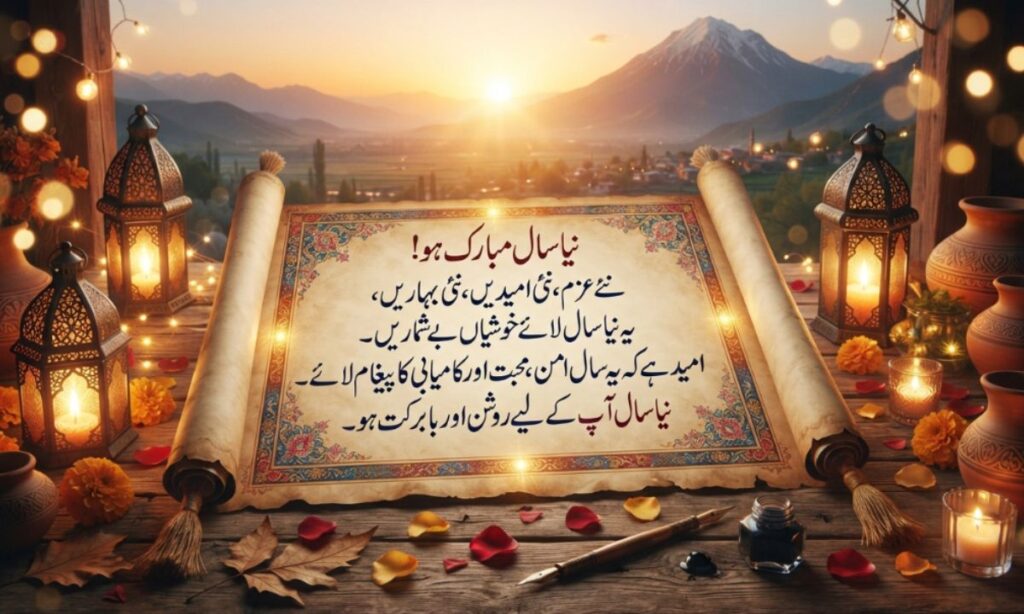 نیا سال مبارک ہو!
نئے عزم، نئی امیدیں، نئی بہاریں،
یہ نیا سال لائے خوشیاں بے شماریں۔
امید ہے کہ یہ سال امن، محبت اور کامیابی کا پیغام لائے۔
نیا سال آپ کے لیے روشن اور بابرکت ہو۔